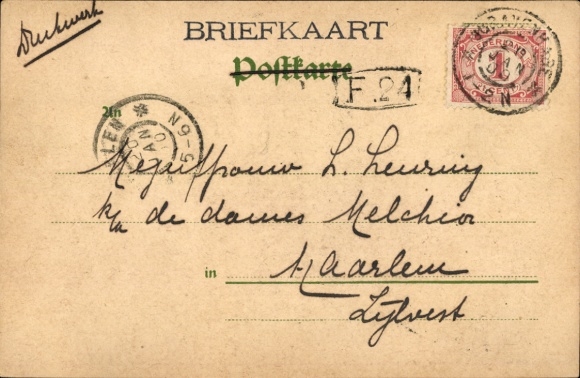 Drukwerk
BRIEFKAART
Postkarte
F.24
NEDERLAND
1
CENT
1-2 N
5-6 N
An
JAN
Mejuffrouw L. Leuring
p/a de dames Melchior
in Haarlem
Zijlvest